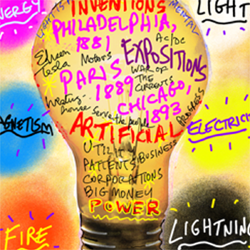 INVENTIONS
ENERGY
LIGHT
PHILADELPHIA,
1881
AC/DC
Edison
Tesla
Motors
EXPOSITIONS
PARIS
1889
WAR OF
THE
CURRENTS
CHICAGO,
1893
serve the people
MAGNETISM
ARTIFICIAL
ELECTRICITY
UTILITIES
PATENTS
BUSINESS
CORPORATIONS
BIG MONEY
POWER
FIRE
LIGHTNING